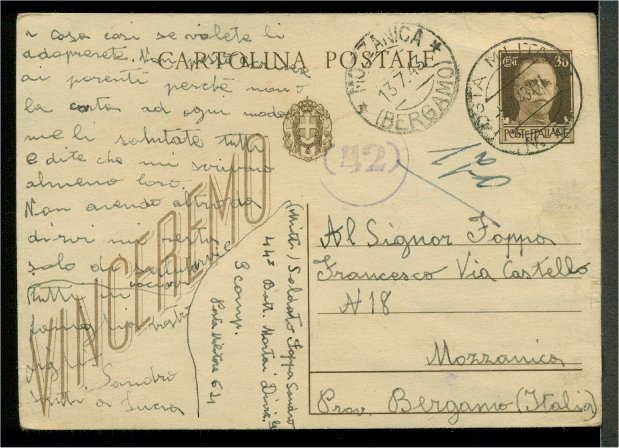 a casa così se volete li
adoprerete. Non
ai parenti perchè non o
la carta ad ogni modo
me li salutate tutti
e dite che mi scrivano
almeno loro.
Non avendo altro da
dirvi mi resta
solo da salutarvi
tutti in
famiglia vostro
figlio Sandro
a Lucia
CARTOLINA POSTALE
VINCEREMO
MOZZANICA
13.7.4
(BERGAMO)
POSTA MILITARE
CENT. 30
POSTE ITALIANE
(42)
Al Signor Foppa
Francesco Via Castello
N 18
Mozzanica
Prov. Bergamo (Italia)
(Mitt.) Soldato Foppa Sandro
44° Batt. Mortai
Comp.
Posta Militare 64